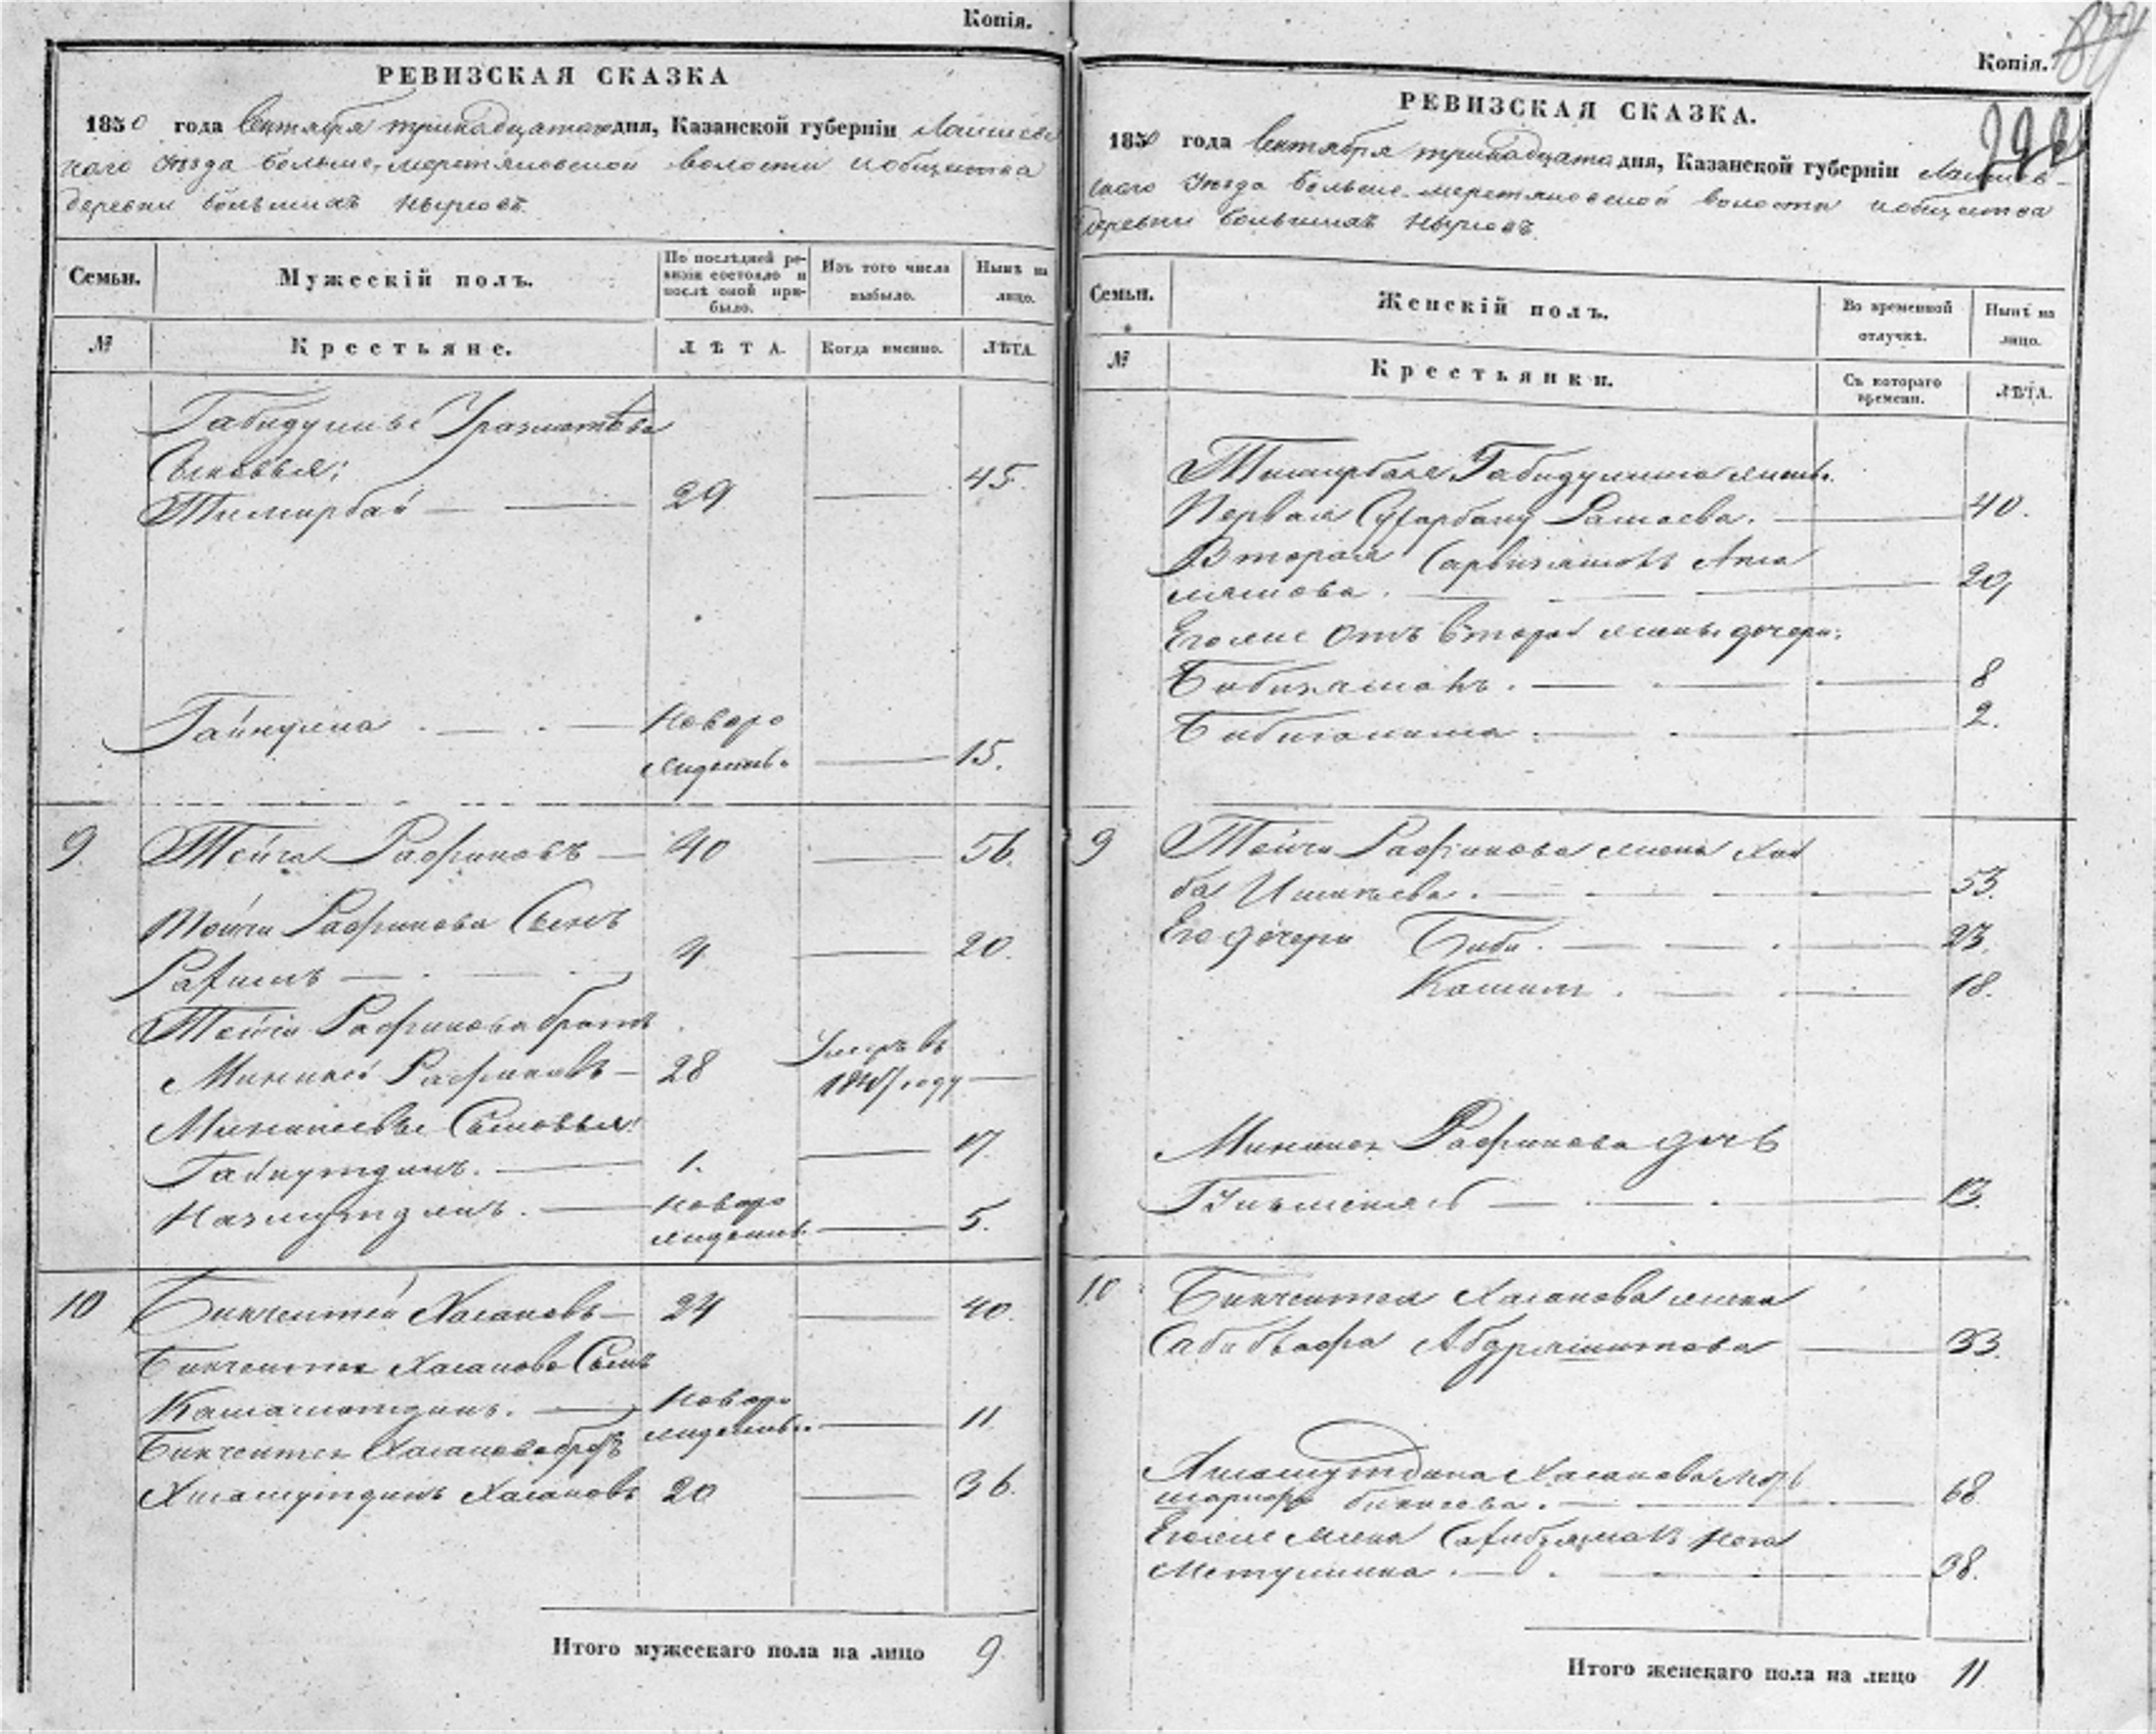 Копія.
РЕВИЗСКАЯ СКАЗКА
1850 года Сентября тринадцатого дня, Казанской губерніи Лаишевс
каго уѣзда Больше-меретяковской волости и общества
деревни большихъ Нырсовъ.
Семьи.
Мужескій полъ.
По послѣдней ре-
визіи состояло и
послѣ оной при-
было.
Изъ того числа
выбыло.
Нынѣ на
лицо.
№
Крестьяне.
ЛѢТА.
Когда именно.
ЛѢТА.
Габидуллы
Сыновья:
Тимирбай 29 45.
Гайнулла Новоро
жденъ. 15.
9. Тойча Рафиковъ 40 56.
Тойчи Рафикова Сынъ
4 20.
Тойчи Рафикова братъ
Миникей Рафиковъ 28 Умеръ въ
1847 году
Миникеевы Сыновья:
Гайнутдинъ. 1. 17.
Назмутдинъ. новоро
жденъ 5.
10 Бикчентей Хасановъ 24 40.
Бикчентея Хасанова Сынъ
Камалетдинъ. новоро
жденъ. 11
Бикчентея Хасанова братъ
Хисамутдинъ Хасановъ 20 36.
Итого мужескаго пола на лицо 9
Копія.
РЕВИЗСКАЯ СКАЗКА.
1850 года Сентября тринадцата дня, Казанской губерніи Лаишев-
скаго Уѣзда Больше-меретяковской волости и общества
деревни большихъ Нырсовъ.
Семьи.
Женскій полъ.
Во временной
отлучкѣ.
Нынѣ на
лицо.
№
Крестьянки.
Съ котораго
времени.
ЛѢТА.
Тимирбая Габидуллина жены.
Первая 40.
Вторая
20,
Егоже отъ второй жены дочери:
Бибизямалъ. 8
2.
9 Тойчи Рафикова жена Хаб
ба 53.
Его дочери Биби. 23.
18.
Миникея Рафикова дочь
13.
10 Бикчентея Хасанова жена
Абдряшитова 33.
Хисамутдина Хасанова мать
68.
Егоже жена
38.
Итого женскаго пола на лицо 11